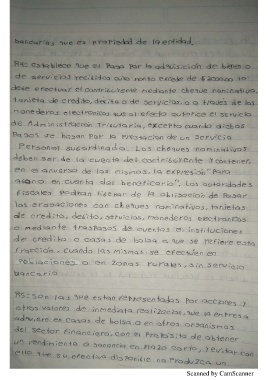 bancarias que es propiedad de la entidad.
R4: Establece que el pago por la adquisicion de bienes o
de servicios recibida cuyo monto excede de $2000.00 se
debe efectuar el contribuyente mediante cheque nominativo,
tarjeta de credito, debito o de servicios o a traves de los
monederos electronicos que al efecto autorice el servicio
de Administracion Tributaria, excepto cuando dichos
Pagos se hagan por la prestacion de un servicio
Personal subordinado. Los cheques nominativos
deben ser de la cuenta del contribuyente y contener
en el anverso de los mismos la expresion "Para
abono en cuenta del beneficiario". Las autoridades
fiscales podran liberar de la obligacion de pagar
las erogaciones con cheques nominativos, tarjetas
de credito, debito, servicios, monederos electronicos
o mediante traspasos de cuentas en instituciones
de credito o casas de bolsa a que se refiere esta
fraccion. Cuando las mismas se efectuen en
Poblaciones o en zonas rurales, sin servicio
bancario
R5: Son las que estan representadas por acciones y
otros valores de inmediata realizacion, que la empresa
adquiere en casas de bolsa o en otros organismos
del sector financiero, con el proposito de obtener
un rendimiento a plazo corto, y evitar con
ello que su efectivo disponible no produzca un
Scanned by CamScanner